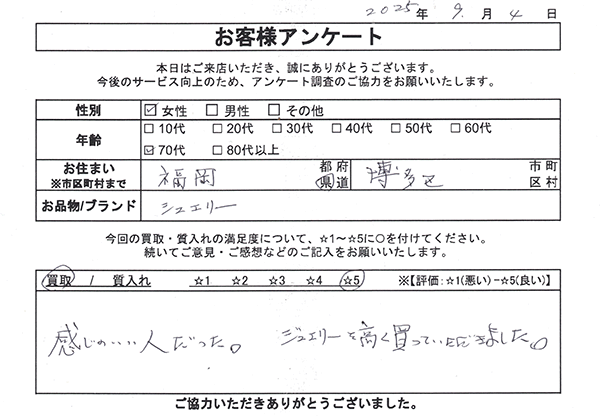 2025年 9月 4日
お客様アンケート
本日はご来店いただき、誠にありがとうございます。
今後のサービス向上のため、アンケート調査のご協力をお願いいたします。
性別 ☑女性 □男性 □その他
年齢 □10代 □20代 □30代 □40代 □50代 □60代
☑70代 □80代以上
お住まい 福岡 都府 博多区 市町
※市区町村まで 県道 区村
お品物/ブランド ジュエリー
今回の買取・質入れの満足度について、☆1～☆5に○を付けてください。
続いてご意見・ご感想などのご記入をお願いいたします。
買取 / 質入れ ☆1 ☆2 ☆3 ☆4 ☆5 ※【評価:☆1(悪い)−☆5(良い)】
感じのいい人だった。 ジュエリーを高く買っていただきました。
ご協力いただきありがとうございました。